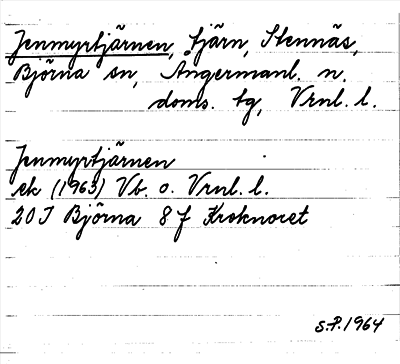 Jenmyrtjärnen, tjärn, Stennäs,
Björna sn, Ångermanl. n.
doms. tg, Vrnl. l.
Jenmyrtjärnen
ek (1963) Vb. o. Vrnl. l.
20 J Björna 8 f Kroknoret
S.P. 1964